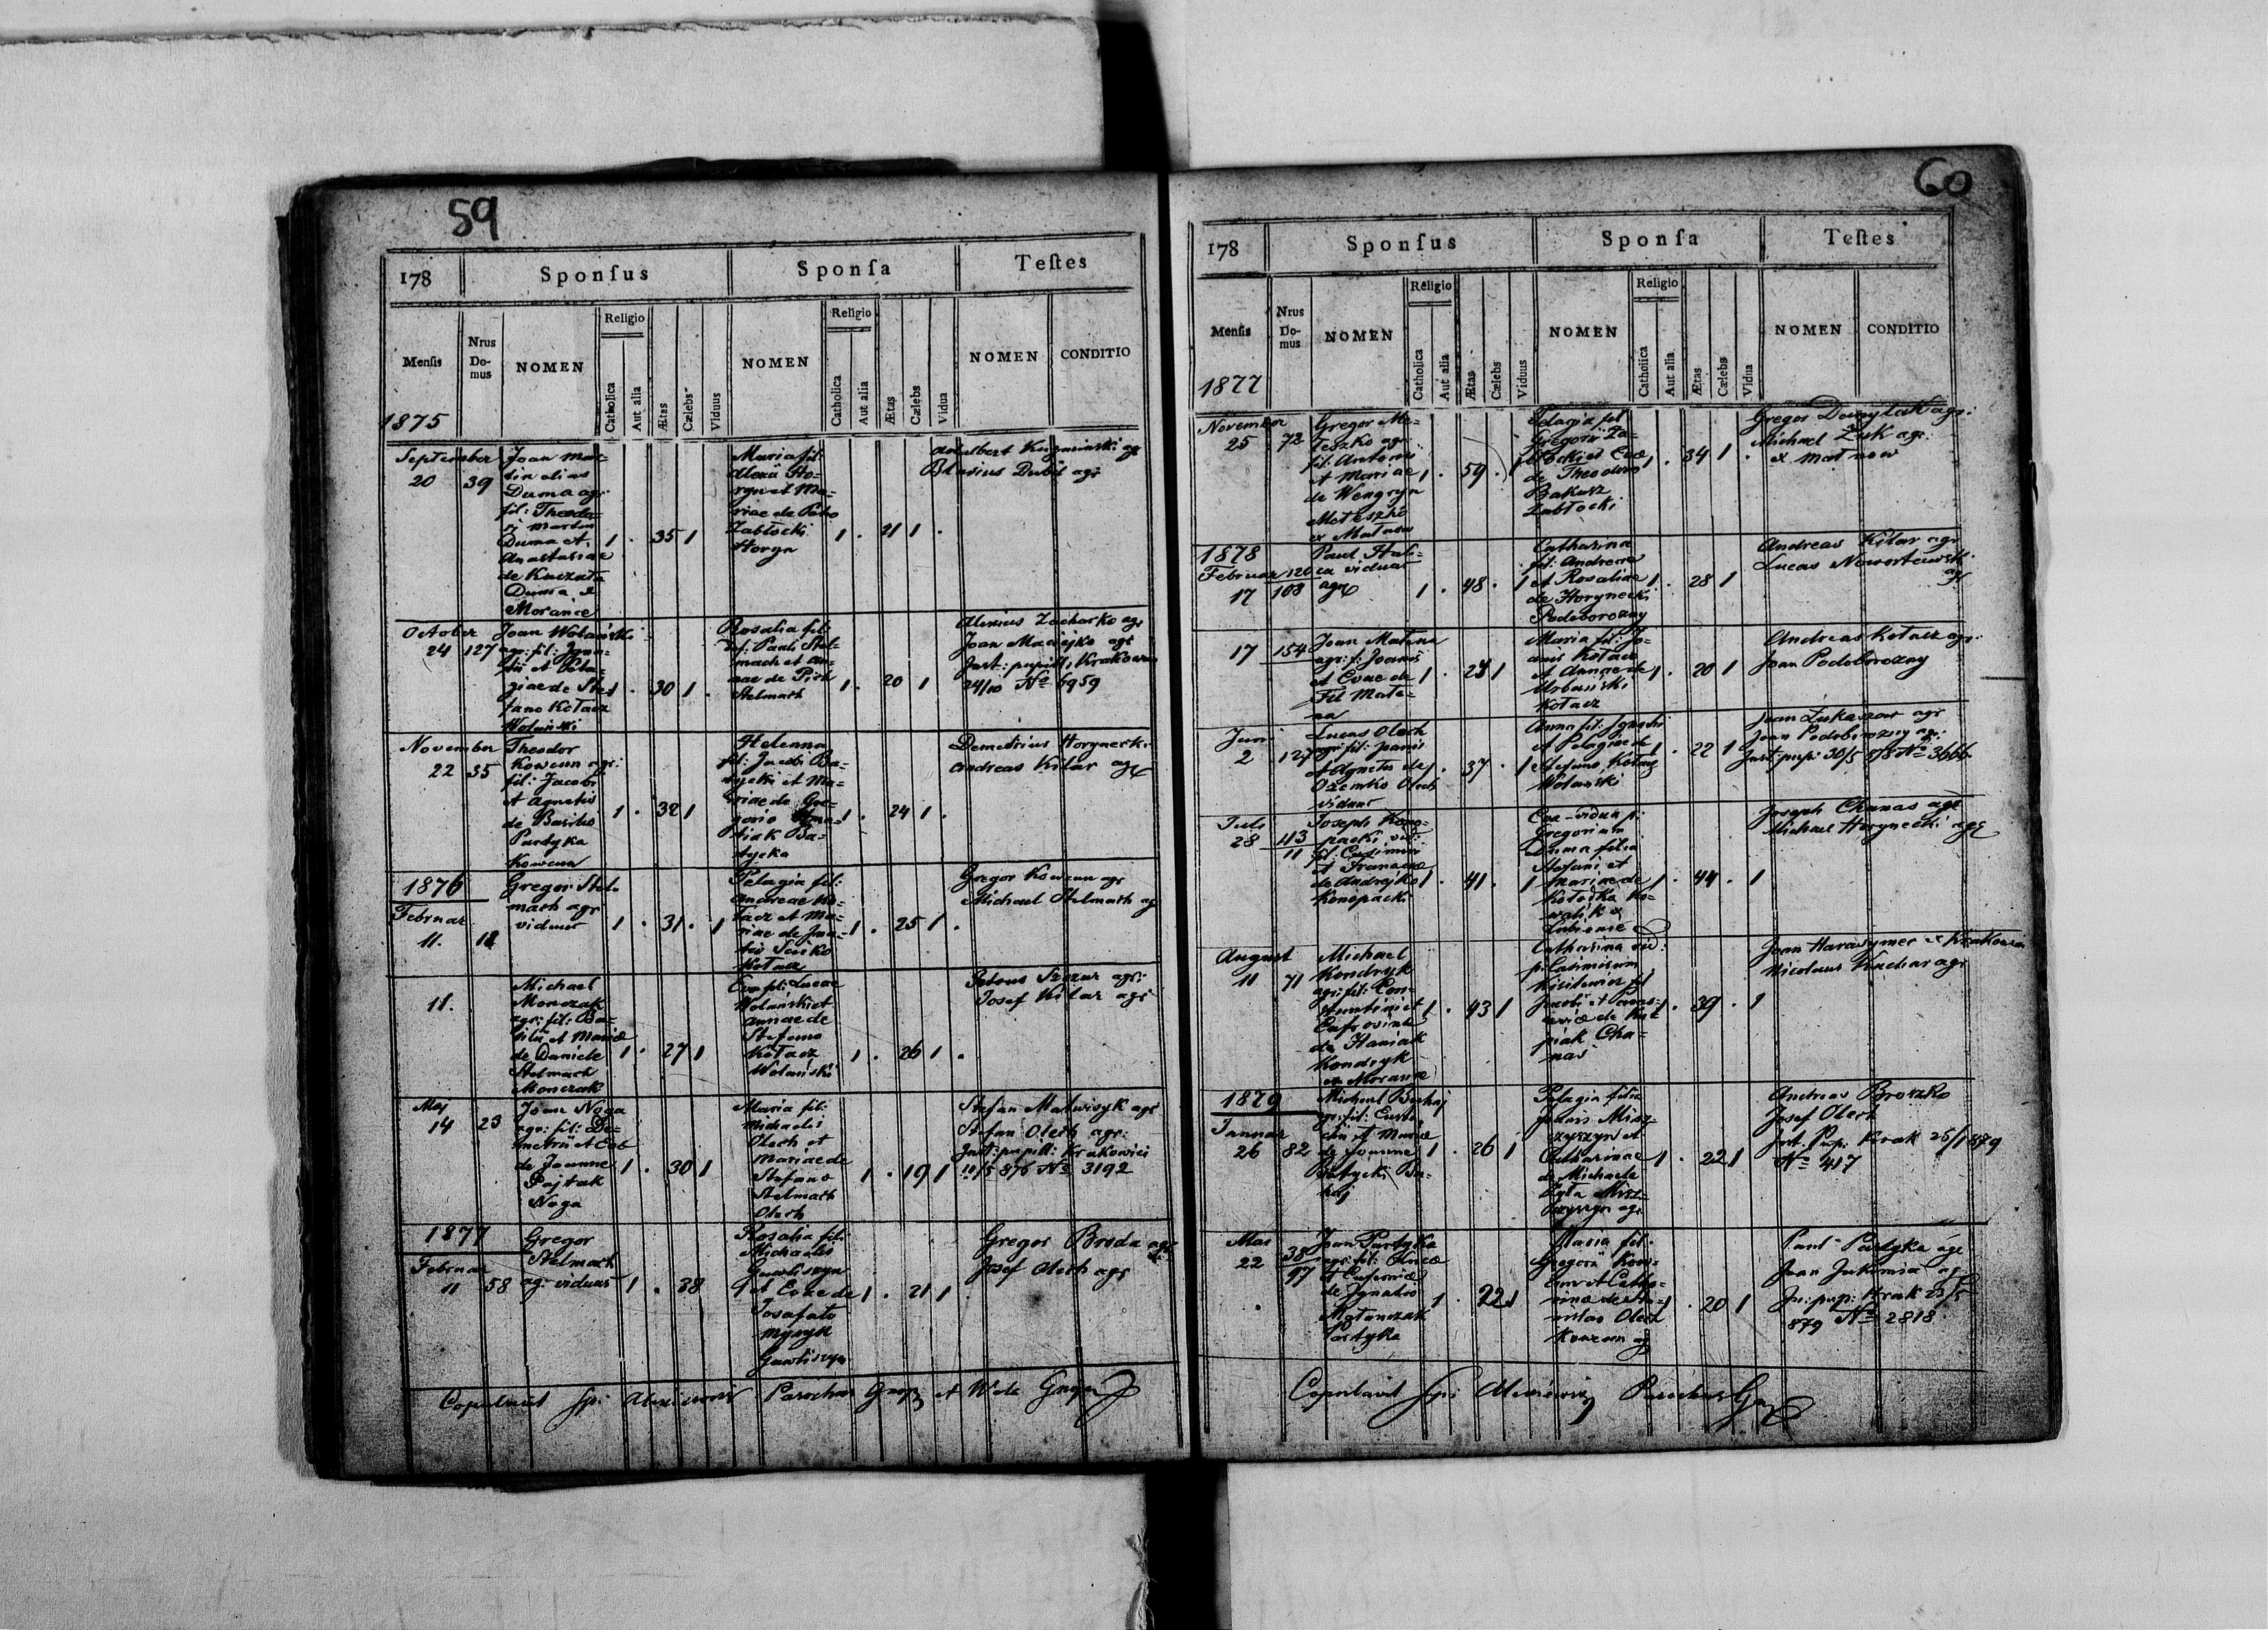 59
178
Sponsus
Sponsa
Testes
Mensis
Nrus Domus
NOMEN
Religio
Catholica
Aut alia
Ætas
Cælebs
Viduus
NOMEN
Religio
Catholica
Aut alia
Ætas
Cælebs
Vidua
NOMEN
CONDITIO
1875
September
20 39
Joan Mar-
tin alias
Duma agr
fil: Theodo-
ri Martin
Duma et
Anastasiae
de
Duma
Moranie
1 . 35 1
Maria fil:
Alexii Ho-
ryn et Ma-
riae de Petro
Zabłocki
Horyn
1 . 21 1 .
Adalbert Kuzminski agr
Blasius Dubil agr
October
24 127
Joan Wolański
agr: fil: Igna-
tii et Pela-
giae de Ste-
fano Kołacz
Wolański
1 . 30 1 .
Rosalia fil:
def: Pauli Stel-
mach et An-
nae de
Stelmach
1 . 20 1
Alexius Zacharko agr
Joan Maciejko agr
Inst: pupill: Krakowec
24/10 No 6959
November
22 35
Theodor
Kowcun agr:
fil: Jacobi
et Agnetis
de Basilio
Partyka
Kowcun
1 . 32 1
Helenna
fil: Jacobi Ba-
tycki et Ma-
riae de Gre-
gorio
Ba-
tycka
1 . 24 1 .
Demetrius Horynecki
Andreas Kitar agr
1876
Februar
11. 12
Gregor Stel-
mach agr
viduus
1 . 31 . 1
Pelagia fil:
Andreae Ko-
łacz et Ma-
riae de Igna-
tio
Kołacz
1 . 25 1 .
Gregor Kowcun agr
Michael Stelmach agr
11.
Michael
Monczak
agr: fil: Ba-
silii et Mariae
de Daniele
Stelmach
Monczak
1 . 27 1
Eva fil: Lucae
Wolański et
Annae de
Stefano
Kołacz
Wolański
1 . 26 1 .
Antonus Szczur agr:
Josef Kitar agr
Maj
14 23
Joan Noga
agr: fil: De-
metrii et Eve
de Joanne
Pajtak
Noga
1 . 30 1
Maria fil:
Michaelis
Olech et
Mariae de
Stefano
Stelmach
Olech
1 . 19 1
Stefan Matwisyk agr
Stefan Olech agr:
Inst: pupill: Krakowiec
10/5 876 No 3192
1877
Februar
11 58
Gregor
Stelmach
agr viduus
1 . 38 1
Rosalia fil:
Michaelis
Gawliszyn
et Evae de
Josafato
Mysyk
Gawliszyn
1 . 21 1
Gregor Broda agr
Josef Olech agr
Copulavit Parochus
60
178
Sponsus
Sponsa
Testes
Mensis
Nrus Domus
NOMEN
Religio
Catholica
Aut alia
Ætas
Cælebs
Viduus
NOMEN
Religio
Catholica
Aut alia
Ætas
Cælebs
Vidua
NOMEN
CONDITIO
1877
November
25 72
Gregor Me-
teszko agr:
fil: Antonii
et Mariae
de Wengryn
Meteszko
1 . 59 . 1
Pelagia fil
Gregorii Za-
błocki et Evae
de Theodoro
Bakusz
Zabłocki
1 . 34 1 .
Gregor Domytak agr:
Michael Żuk agr:
1878
Februar 120
17 108
Paul Hali-
ca viduus
agr
1 . 48 . 1
Catharina
fil: Andreae
et Rosaliae
de Horynecki
Podoborozny
1 . 28 1
Andreas Kitar agr
Lucas agr
17 154
Joan Matena
agr: f: Joanis
et Evae de
Fil Mate-
na
1 . 23 1
Maria fil: Jo-
anis Kołacz
et Annae de
Urbański
Kołacz
1 . 20 1
Andreas Kołacz agr:
Joan Podoborozny
Juni
2 127
Lucas Olech
agr: fil: Joanis
et Agnetis de
Olech
viduus
1 . 37 . 1
Anna fil: Ignatii
et Pelagiae de
Stefano Kołacz
Wolański
1 . 22 1
Joan Lukaszow agr
Joan Podoborozny agr:
Inst: pupi 30/5 878 No 3666
Juli
28 113
11
Joseph Kono-
packi vid:
fil: Casimiri
et Franciscae
de Andrejko
Konopacki
1 . 41 . 1
Eva - vidua p:
Gregorium
Duma filia
Stefani et
Mariae de
Ko-
walik
1 . 44 . 1
Joseph Chanas agr
Michael Horynecki agr
August
11 71
Michael
Kondryk
agr: fil: Con-
stantini et
Eufrosinae
de Haniak
Kondryk
ex Moranie
1 . 43 1
Catharina vid:
p: Casimirum
fil:
Jacobi et
Cha-
nas
1 . 39 . 1
Joan Harasymer ex Krakowec
Nicolaus Kuchar agr
1879
Januar
26 82
Michael
agr: fil:
et Mariae
de Joanne
Batycki
1 . 26 1
Pelagia filia
Joanis Misz-
czyszyn et
Catharinae
de Michaele
Misz-
czyszyn agr
1 . 22 1
Andreas Broszko
Josef Olech
Inst. Pup: Krak 25/1 879
No 417
Mai
22 38
97
Joan Partyka
agr: fil:
et Eufemiae
de Ignatio
Partyka
1 . 22 1
Maria fil:
Gregorii Kow-
cun et Catha-
rinae de
Olech
Kowcun agr
1 . 20 1
Paul Partyka agr
Joan agr
In: pup: Krak 23/5
879 No 2818
Copulavit Parochus